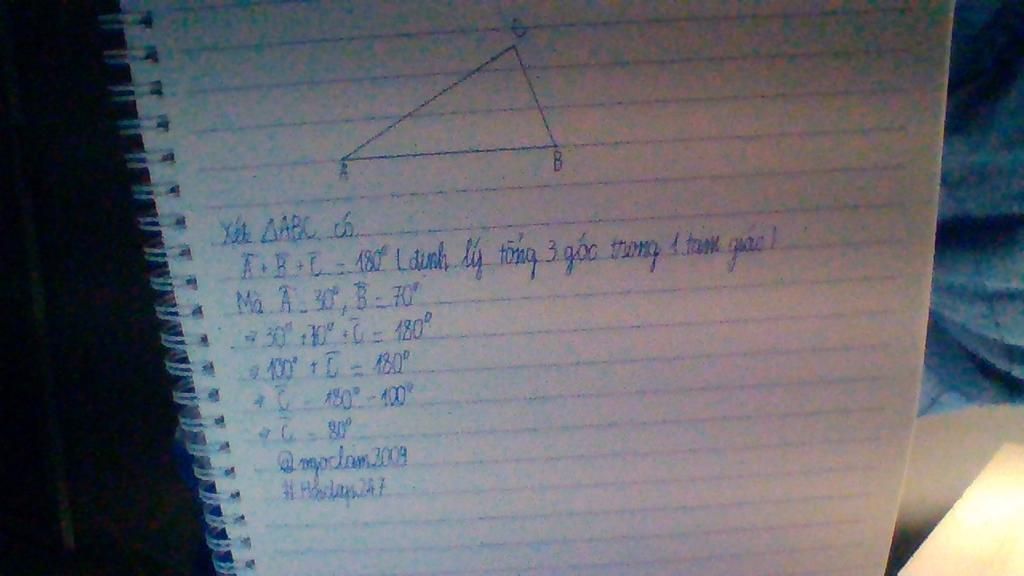 C
A
B
Xét ΔABC có
A + B + C = 180° (định lý tổng 3 góc trong 1 tam giác)
Mà A = 30°, B = 70°
⇒ 30° + 70° + C = 180°
⇒ 100° + C = 180°
⇒ C = 180° - 100°
⇒ C = 80°
@ngoclam2009
#Hoidap247